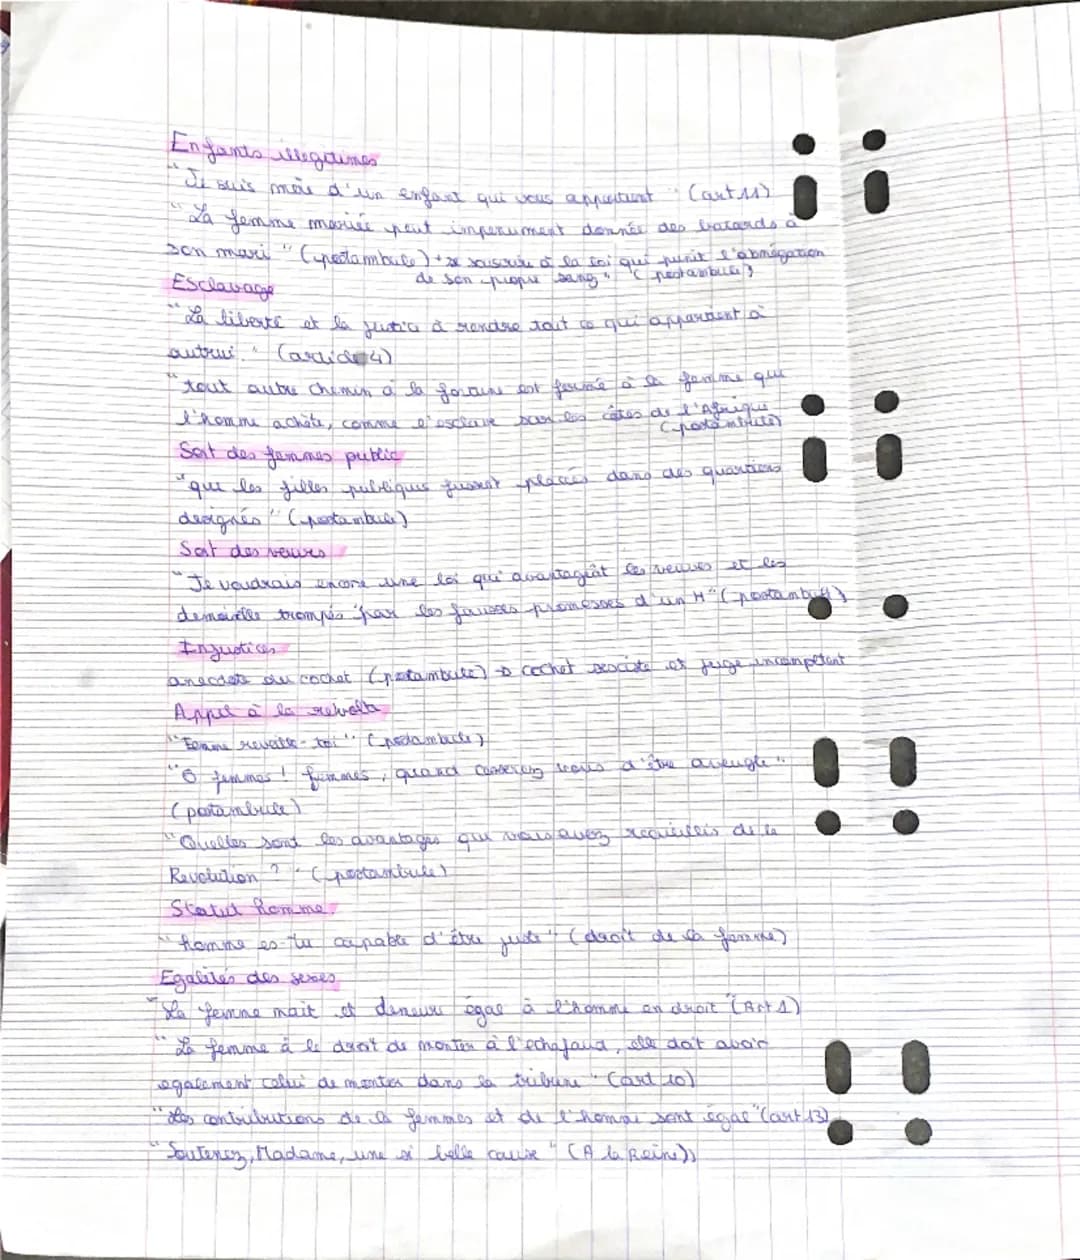 Enfants illegitimes
"Je suis mère d'un enfant qui vous appartient" (art 11)
"La femme mariée peut impunument donnée des batards à
son mari" (postambule) + "se souscrire à la loi qui punit l'abnégation
de son propre sang" (postambule)
Esclavage
"La liberté et la justice à rendre tout ce qui appartient à
autrui." (article 4)
"tout autre chemin à la fortune est fermé à la femme que
l'homme achète, comme l'esclave sur les côtes de l'Afrique
(postambule)
Sort des femmes public
"que les filles publiques fussent placées dans des quartiers
designés" (postambule)
Sort des veuves
"Je voudrais encore une loi qui avantageât les veuves et les
demoiselle trompés par les fausses promesses d'un H" (postambule)
Injustices
anecdote du cochet (postambule) → cochet sexiste et juge incompétent
Appel à la révolte
"Femme reveille-toi" (postambule)
"O femmes ! femmes, quand cesserez vous d'être aveugle"
(postambule)
"Quelles sont les avantages que vous avez recueillis de la
Revolution ?" (postambule)
Statut homme
"homme es-tu capable d'être juste" (droit de la femme)
Egalités des sexes
"La femme nait et demeure égae à l'homme en droit" (Art 1)
"La femme à le droit de monter à l'echafaud, elle doit avoir
egalement celui de monter dans la tribune" (art 10)
"Les contributions de la femmes et de l'homme sont égae" (art 13)
"Soutenez, Madame, une si belle cause" (A la Reine))